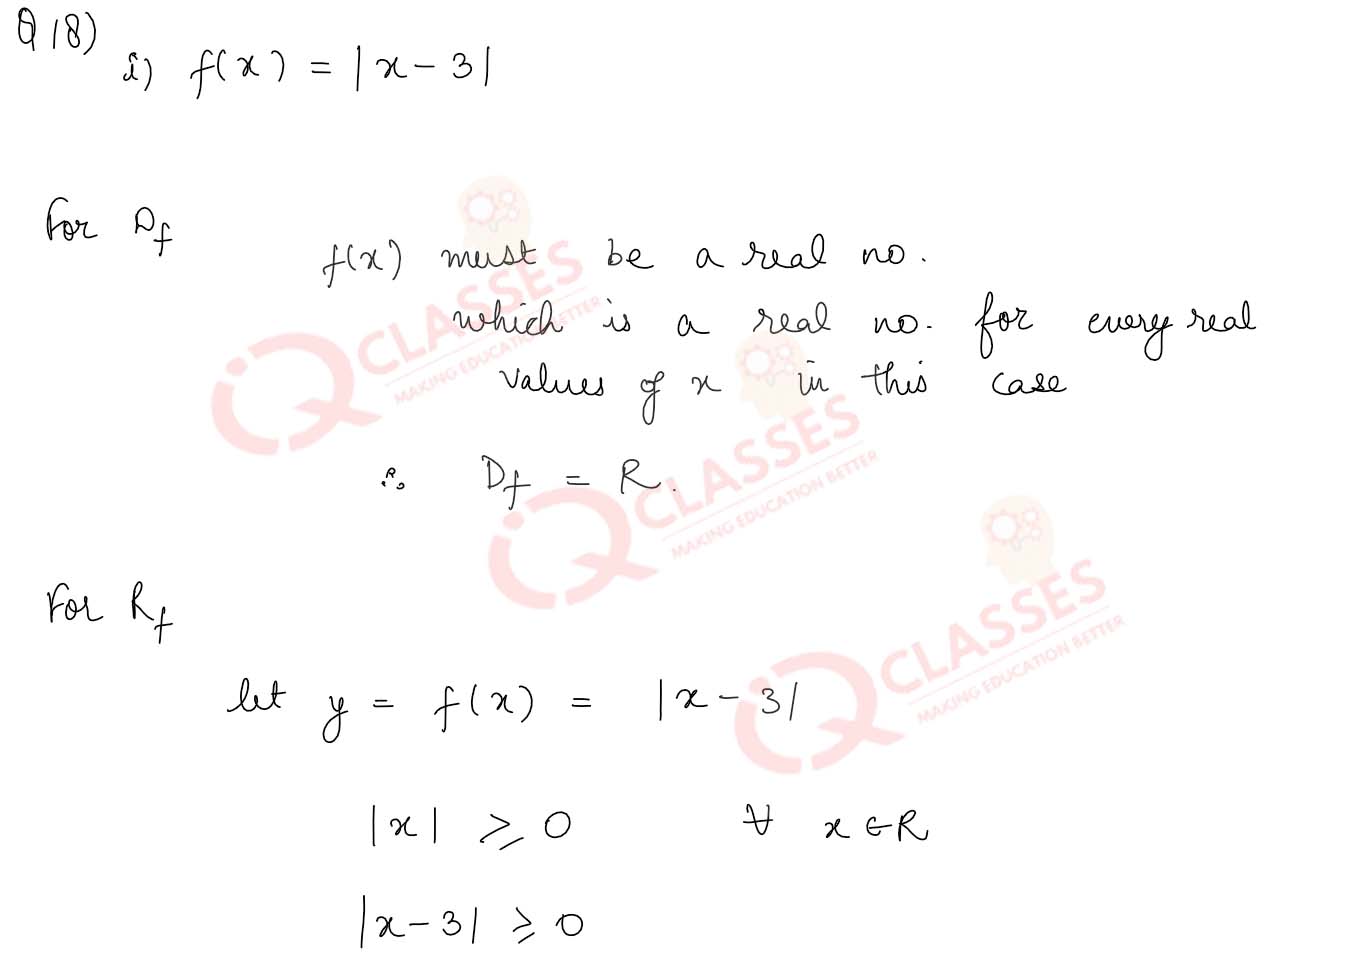 Q 18)
i) f(x) = |x - 3|
For Df
f(x) must be a real no.
which is a real no. for every real
values of x in this case
∴ Df = R.
For Rf
let y = f(x) = |x - 3|
|x| ⩾ 0 ∀ x ∈ R
|x - 3| ⩾ 0
iQ CLASSES
MAKING EDUCATION BETTER
iQ CLASSES
MAKING EDUCATION BETTER
iQ CLASSES
MAKING EDUCATION BETTER